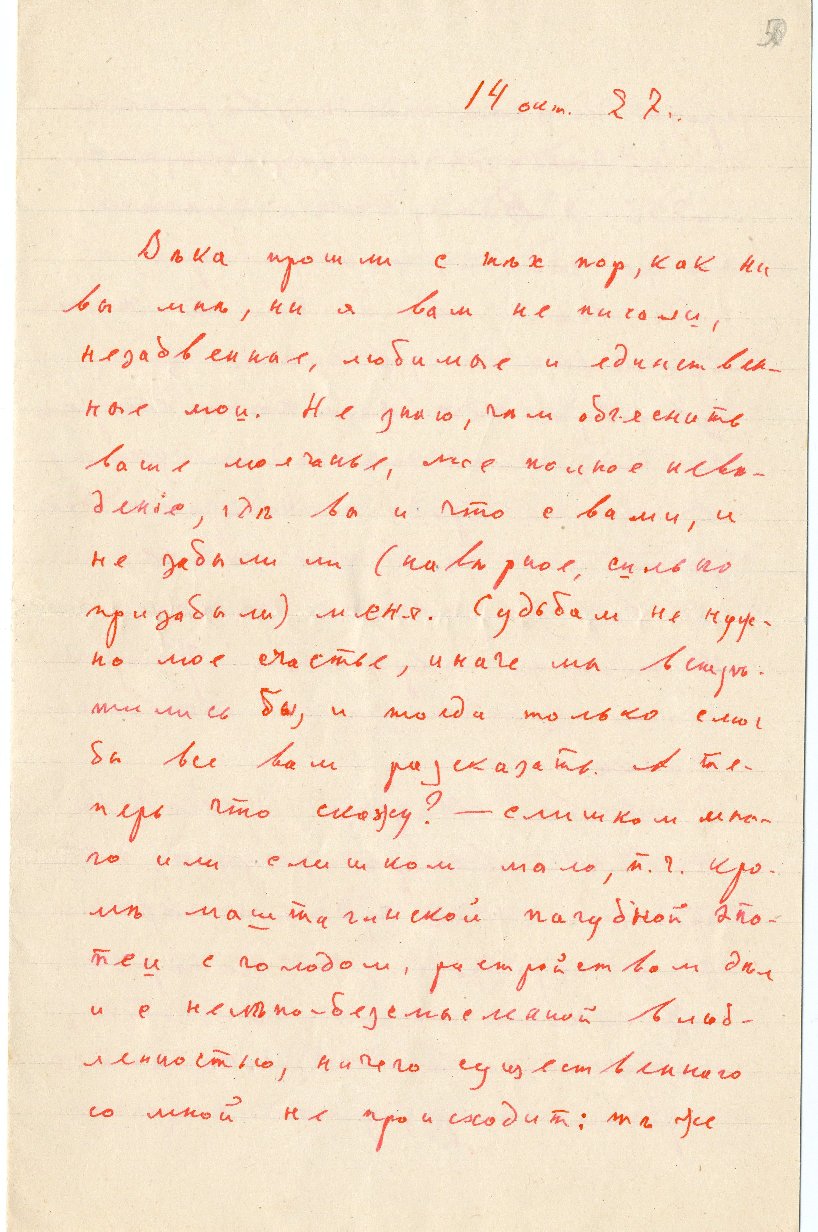 14 окт. 27 г.
Вѣка прошли с тѣх пор, как ни
вы мнѣ, ни я вам не писали,
незабвенные, любимые и единствен-
ные мои. Не знаю, чѣм объяснить
ваше молчанье, мое полное невѣ-
дение, гдѣ вы и что с вами, и
не забыли ли (навѣрное, сильно
призабыли) меня. Судьбам не нуж-
но мое счастье, иначе мы встрѣ-
тились бы, и тогда только смог
бы все вам разсказать. А те-
перь что скажу? — слишком мно-
го или слишком мало, п.ч. кро-
мѣ маштагинской пагубной эпо-
пеи с голодом, растройством дѣл
и с нелѣпо-безсмысленной влюб-
ленностью, ничего существеннаго
со мной не происходит: тѣ же